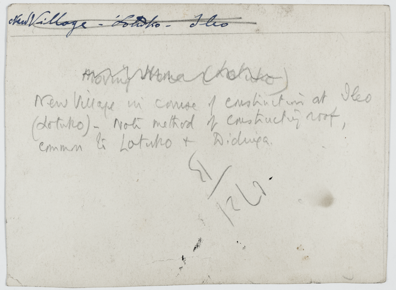 New Village - Lotuko - Ileo
(Lotuko)
New Village in course of construction at Ileo
(Lotuko) - Note method of constructing roof,
common to Latuko + Didinga.